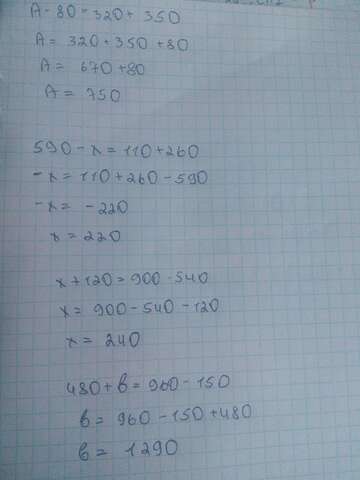 A - 80 = 320 + 350
A = 320 + 350 + 80
A = 670 + 80
A = 750
590 - x = 110 + 260
-x = 110 + 260 - 590
-x = -220
x = 220
x + 120 = 900 - 540
x = 900 - 540 - 120
x = 240
480 + в = 960 - 150
в = 960 - 150 + 480
в = 1290